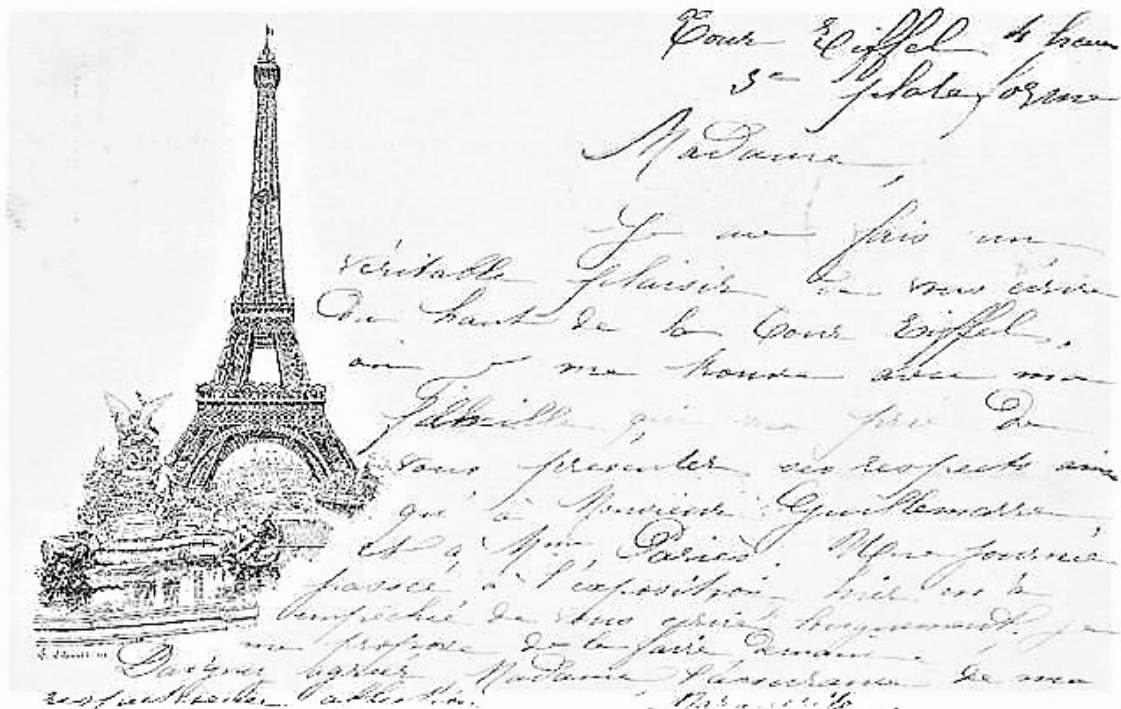 Tour Eiffel 4 heures
3e plateforme
Madame,
Je me fais un
véritable plaisir de vous écrire
du haut de la Tour Eiffel,
où je me trouve avec ma
famille qui me prie de
vous présenter ses respects ainsi
qu'à Monsieur Guillemarre
et à Mme Pariès. Une journée
passée à l'exposition hier m'a
empêchée de vous écrire longuement. je
me propose de le faire demain.
Daignez agréer, Madame l'assurance de ma
respectueuse affection.